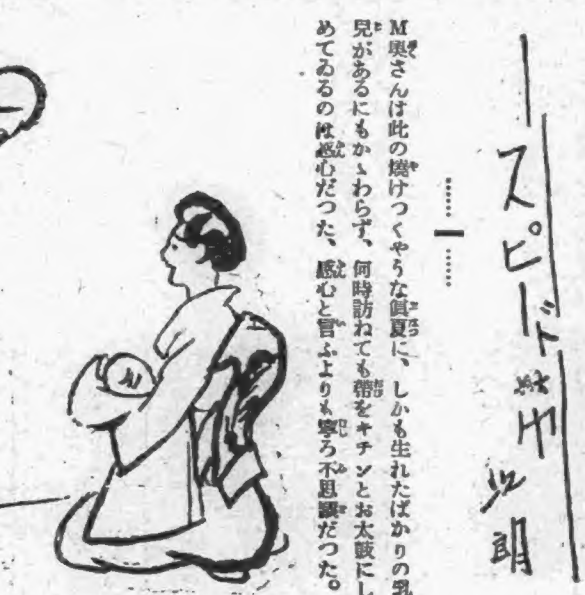 スピード
……一……
M奥さんは此の燒けつくやうな眞夏に、しかも生れたばかりの乳
兒があるにもかゝわらず、何時訪ねても帶をキチンとお太鼓にし
めてゐるのは感心だつた、感心と言ふよりも寧ろ不思議だつた。